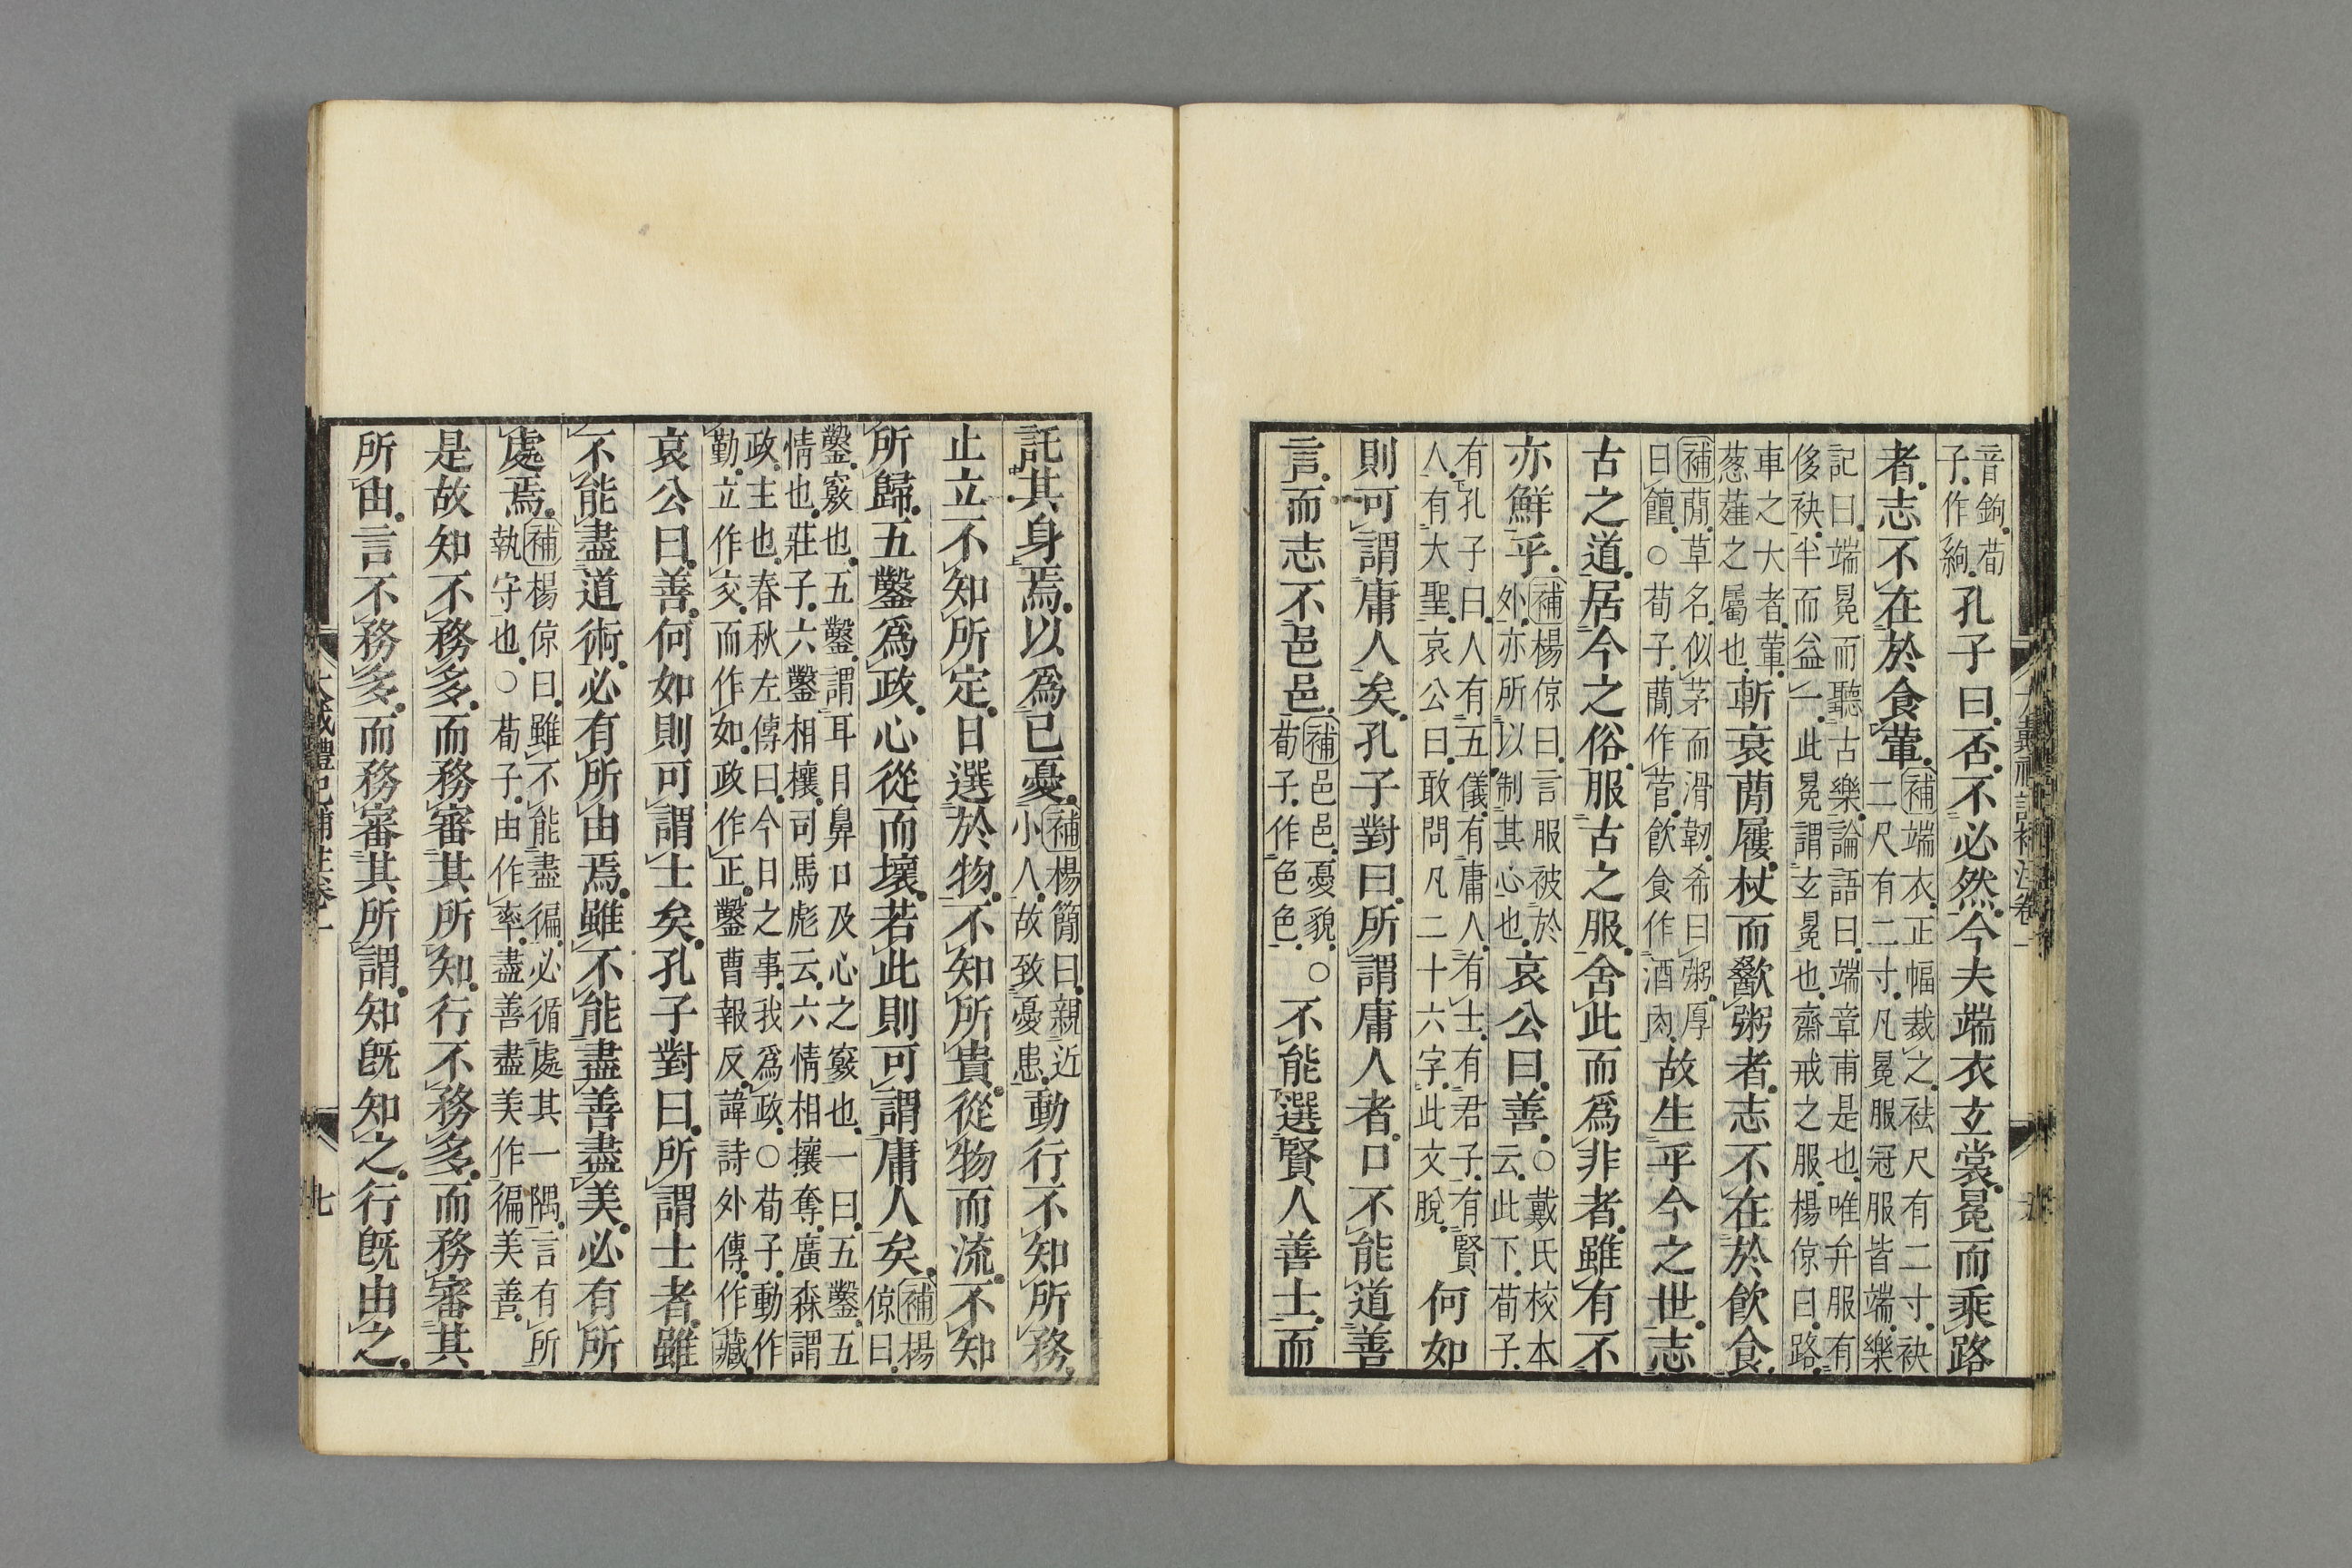 音鉤荀
子作絢孔子曰否不必然今夫端衣玄裳冕而乘路
者志不在於食葷補端衣正幅裁之袪尺有二寸袂
二尺有二寸凡冕服冠服皆端樂
記曰端冕而聽古樂論語曰端章甫是也唯弁服有
侈袂半而益一此冕謂玄冕也齋戒之服楊倞曰路
車之大者葷
葱薤之屬也斬衰蕑屨杖而歠粥者志不在於飲食
補蕑草名似茅而滑韌希曰粥厚
曰饘○荀子蕑作菅飲食作酒肉故生乎今之世志
古之道居今之俗服古之服舍此而爲非者雖有不
亦鮮乎補楊倞曰言服被於
外亦所以制其心也哀公曰善○戴氏校本
云此下荀子
有孔子曰人有五儀有庸人有士有君子有賢
人有大聖哀公曰敢問凡二十六字此文脫何如
則可謂庸人矣孔子對曰所謂庸人者口不能道善
言而志不邑邑補邑邑憂貌○
荀子作色色不能選賢人善士而
託其身焉以爲已憂補楊簡曰親近
小人故致憂患動行不知所務
止立不知所定日選於物不知所貴從物而流不知
所歸五鑿爲政心從而壞若此則可謂庸人矣補楊
倞曰
鑿竅也五鑿謂耳目鼻口及心之竅也一曰五鑿五
情也莊子六鑿相攘司馬彪云六情相攘奪廣森謂
政主也春秋左傳曰今日之事我爲政○荀子動作
勤立作交而作如政作正鑿曹報反諱詩外傳作藏
哀公曰善何如則可謂士矣孔子對曰所謂士者雖
不能盡道術必有所由焉雖不能盡善盡美必有所
處焉補楊倞曰雖不能盡徧必循處其一隅言有所
執守也○荀子由作率盡善盡美作徧美善
是故知不務多而務審其所知行不務多而務審其
所由言不務多而務審其所謂知旣知之行旣由之
大戴禮記補注卷一
七